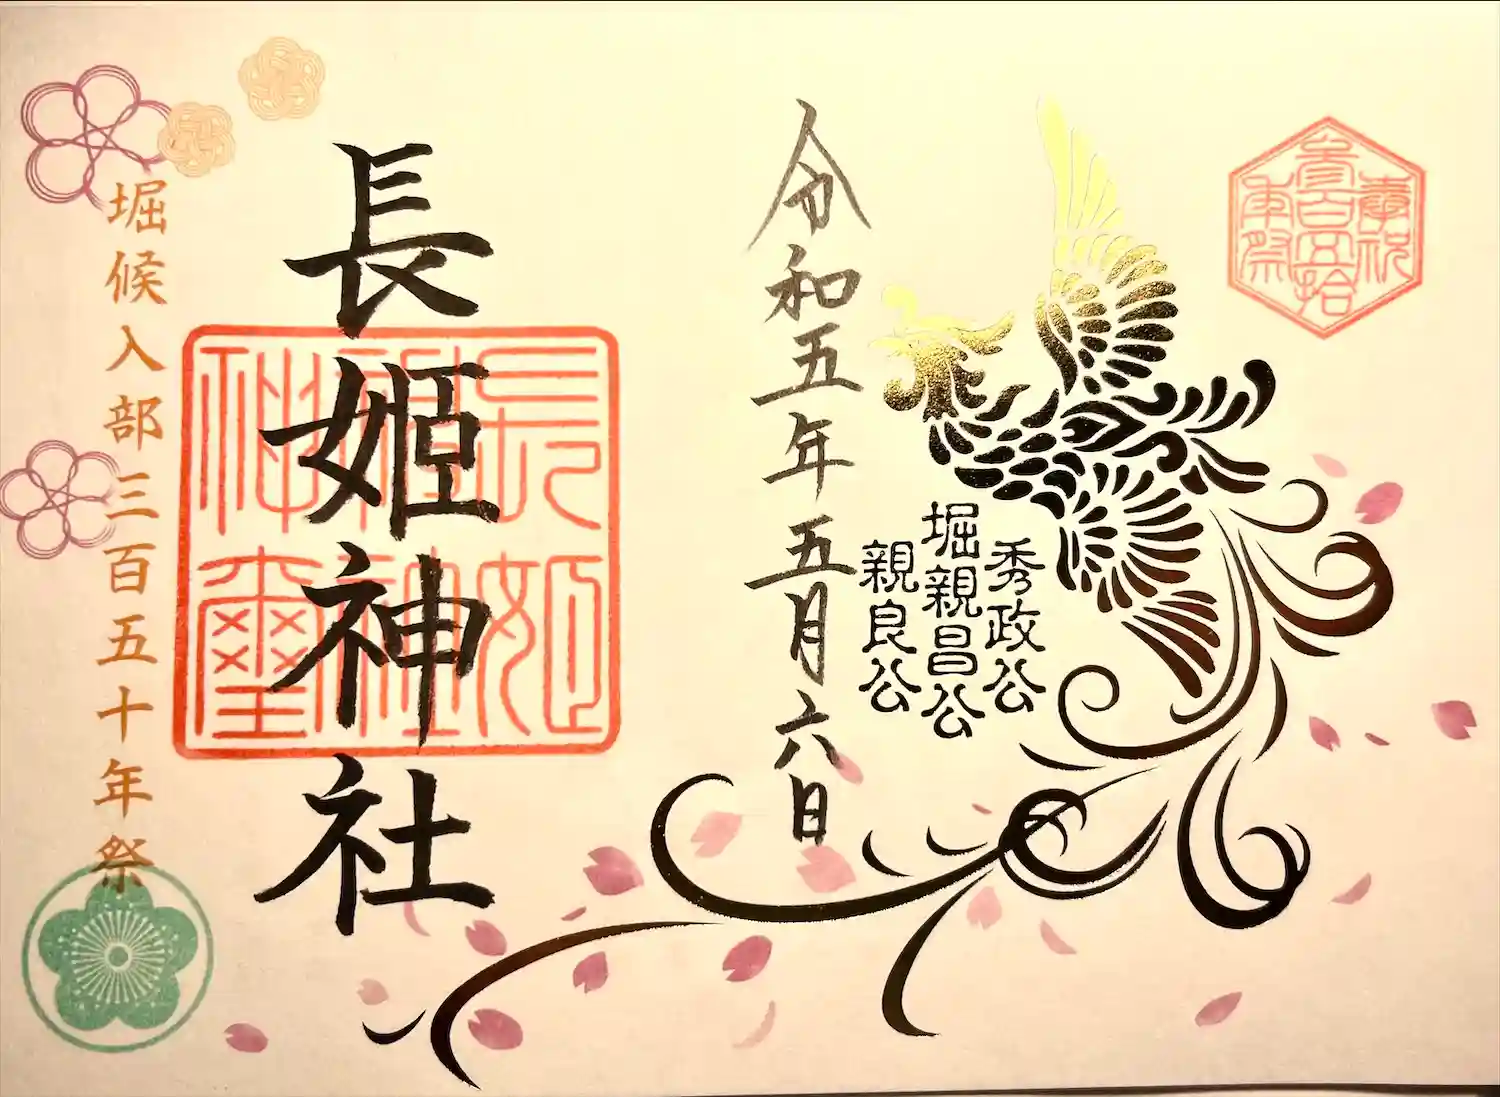 奉祝
参百五拾
年祭
秀政公
堀親昌公
親良公
令和五年五月六日
長姫神社
長姫
神社
神璽
堀候入部三百五十年祭